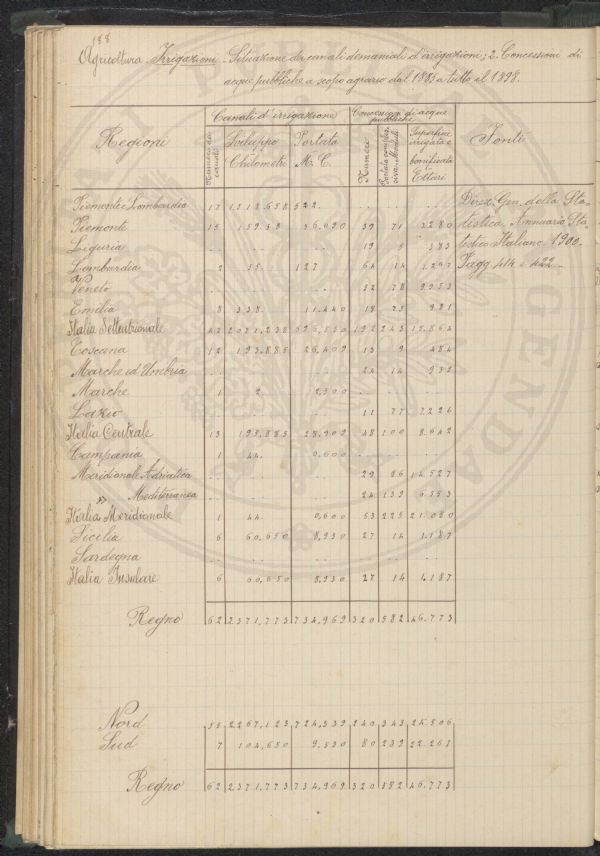 188
Agricoltura. Irrigazioni - Situazione dei canali demaniali d'irrigazioni; 2. Concessioni di
acque pubbliche a scopo agrario dal 1885 a tutto il 1898.
Regioni | Canali d'irrigazione | Concessioni di acque pubbliche | Fonti
Numeri dei canali | Sviluppo Chilometri | Portata M. C. | Numeri | Portata complessiva Moduli | Superficie irrigata e bonificata Ettari
Piemonte e Lombardia 17 1,218,658 522. .. .. .. Direz. Gen. della Sta-
Piemonte 15 459.58 56,030 39 71 3280 tistica. Annuario Sta-
Liguria .. .. .. 19 5 383 tistico Italiano 1900.
Lombardia 2 55. 127 64 14 1297 Pagg. 414 e 422.
Veneto .. .. .. 52 78
Emilia 8 338. 11.440 18 75 981
Italia Settentrionale 42 2071,238 696,530 192 243 15,864
Toscana 12 193,885 26,409 13 9 484
Marche ed Umbria .. .. .. 24 14 932
Marche 1 2. 2,500 .. .. ..
Lazio .. .. .. 11 77 7226
Italia Centrale 13 195,885 28,909 48 100 8.642
Campania 1 44. 0,600 .. .. ..
Meridionale Adriatica .. .. .. 29 86 14.527
» Mediterranea .. .. .. 24 139 6553
Italia Meridionale 1 44. 0,600 53 225 21.080
Sicilia 6 60,650 8,930 27 14 1.187
Sardegna .. .. .. .. .. ..
Italia Insulare 6 60,650 8,930 27 14 1.187
Regno 62 2371,773 734,969 320 582 46.773
Nord 55 2267,123 724,539 240 343 24.506
Sud 7 104,650 9.530 80 239
Regno 62 2371,773 734,969 320 582 46.773